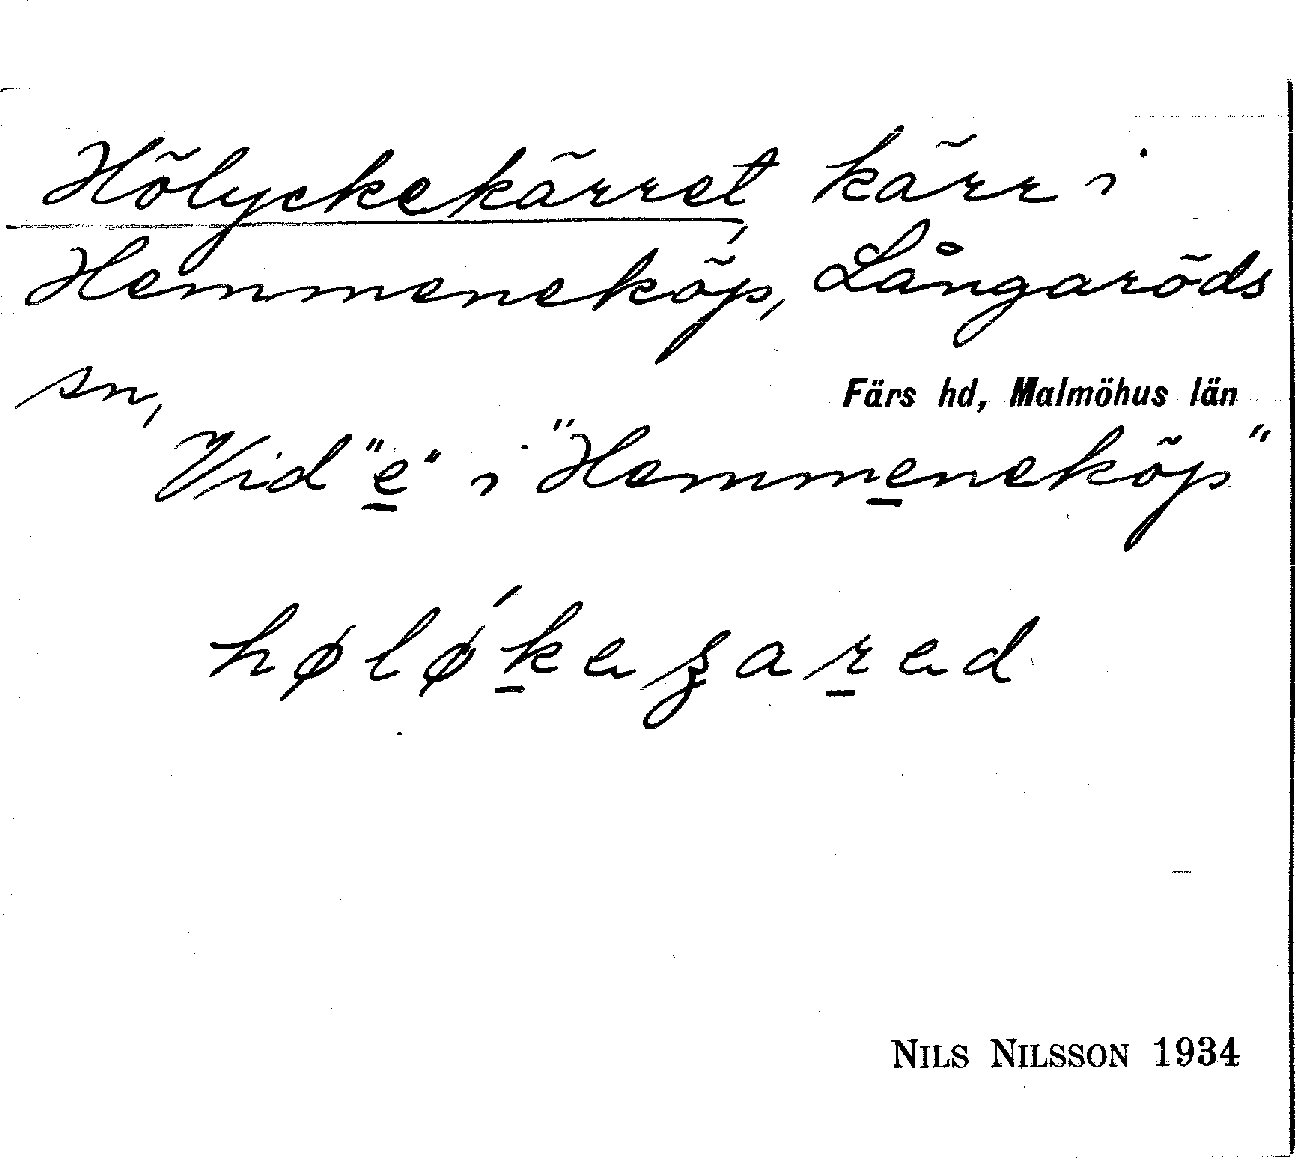 Hölyckekärret, kärr i
Hemmeneköp, Långaröds
sn,
Färs hd, Malmöhus län
Vid "e" i "Hemmeneköp"
NILS NILSSON 1934